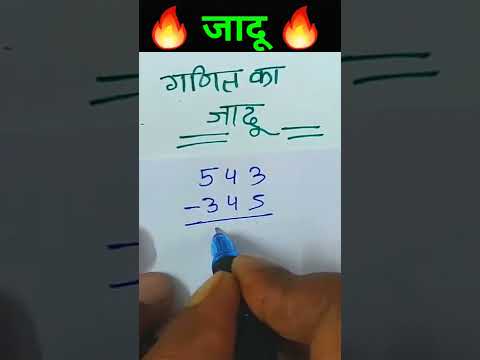 🔥 जादू 🔥
गणित का
जादू
543
-345